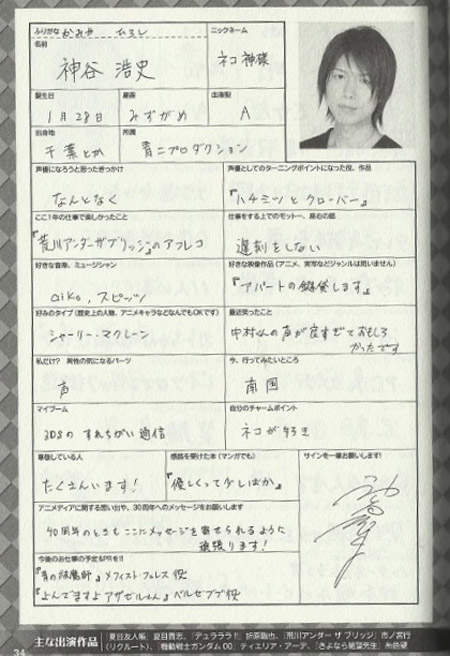 ふりがな かみや ひろし
名前
神谷 浩史
ニックネーム
ネコ神様
誕生日
1月28日
星座
みずがめ
血液型
A
出身地
千葉とか
所属
青二プロダクション
声優になろうと思ったきっかけ
なんとなく
声優としてのターニングポイントになった役、作品
『ハチミツとクローバー』
ここ1年の仕事で楽しかったこと
『荒川アンダーザブリッジ』のアフレコ
仕事をする上でのモットー、座右の銘
遅刻をしない
好きな音楽、ミュージシャン
aiko、スピッツ
好きな映像作品(アニメ、実写などジャンルは問いません)
『アパートの鍵貸します』
好みのタイプ(歴史上の人物、アニメキャラなどなんでもOKです)
シャーリー・マクレーン
最近笑ったこと
中村くんの声が良すぎておもしろ
かったです
私だけ? 異性の気になるパーツ
声
今、行ってみたいところ
南国
マイブーム
3DSの すれちがい通信
自分のチャームポイント
ネコが好き
尊敬している人
たくさんいます!
感銘を受けた本(マンガでも)
『優しくって少しばか』
サインを一筆お願いします!
アニメディアに関する思い出や、30周年へのメッセージをお願いします
40周年のときもここにメッセージを寄せられるように
頑張ります!
今後のお仕事の予定もPRを!!
『青の祓魔師』メフィスト・フェレス役
『よんでますよアザゼルさん』ベルゼブブ役
34
主な出演作品
『夏目友人帳』夏目貴志、『デュラララ!!』折原臨也、『荒川アンダー ザ ブリッジ』市ノ宮行
(リクルート)、『機動戦士ガンダム00』ティエリア・アーデ、『さよなら絶望先生』糸色望